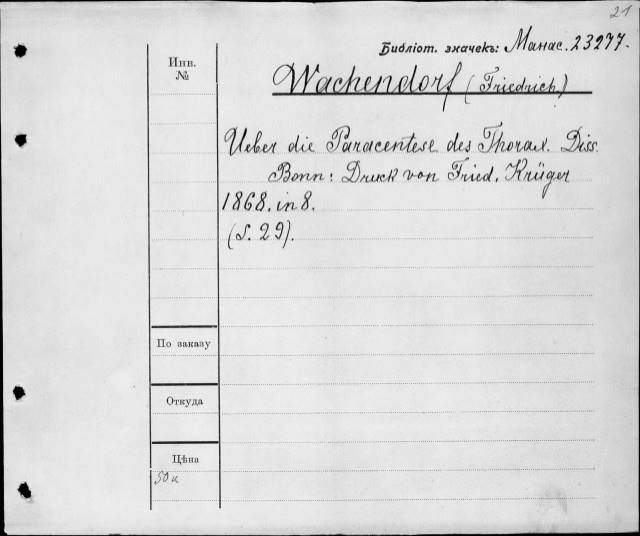 21
Библіот. значекъ: Манас. 23277.
Инв.
№
Wachendorf (Friedrich)
Ueber die Paracentese des Thorax. Diss.
Bonn: Druck von Fried. Krüger
1868. in 8.
(S. 29).
По заказу
Откуда
Цѣна
50 к